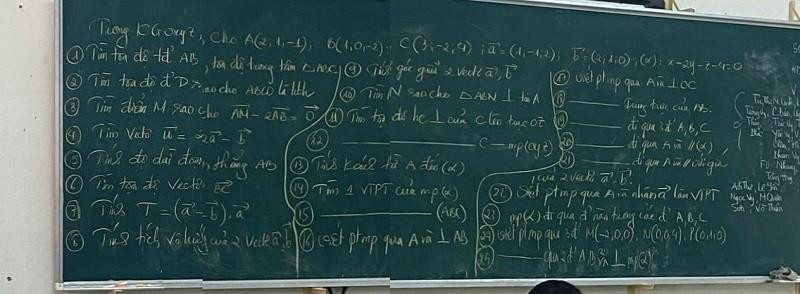 Trong KG oxyz, cho A(2;1;-1), B(1;0;-2), C(3;-2;4); a = (1;-1;2), b = (2;1;0), (α): x-2y-z-4=0
① Tìm tọa độ tđ AB, tọa độ trọng tâm ΔABC
② Tìm tọa độ đ D sao cho ABCD là hbh
③ Tìm điểm M sao cho AM - 2AB = 0
④ Tìm Vectơ u = 2a - b
⑤ Tính độ dài đoạn thẳng AB
⑥ Tìm tọa độ Vectơ BC
⑦ Tính T = (a - b).a
⑧ Tính tích vô hướng của 2 Vectơ a, b
⑨ Tính góc giữa 2 vectơ a, b
⑩ Tìm N sao cho ΔABN ⊥ tại A
⑪ Tìm tọa độ hc ⊥ của C lên trục OZ
⑫ C mp(oyz)
⑬ Tính K/cách từ A đến (α)
⑭ Tìm 1 VTPT của mp(α)
⑮ (ABC)
⑯ Viết ptmp qua A và ⊥ AB
⑰ viết ptmp qua A và ⊥ OC
⑱ trung trực của AB.
⑲ đi qua 3đ A, B, C
⑳ đi qua A và // (α)
㉑ đi qua A và // với giá
của 2 vectơ a, b
㉒ Viết ptmp qua A và nhận a làm VTPT
㉓ mp(α) đi qua đ nào trong các đ A, B, C
㉔ Viết ptmp qua 3đ M(-2;0;0), N(0;0;4), P(0;1;0)
㉕ qua 2đ A, B và ⊥ mp(α)